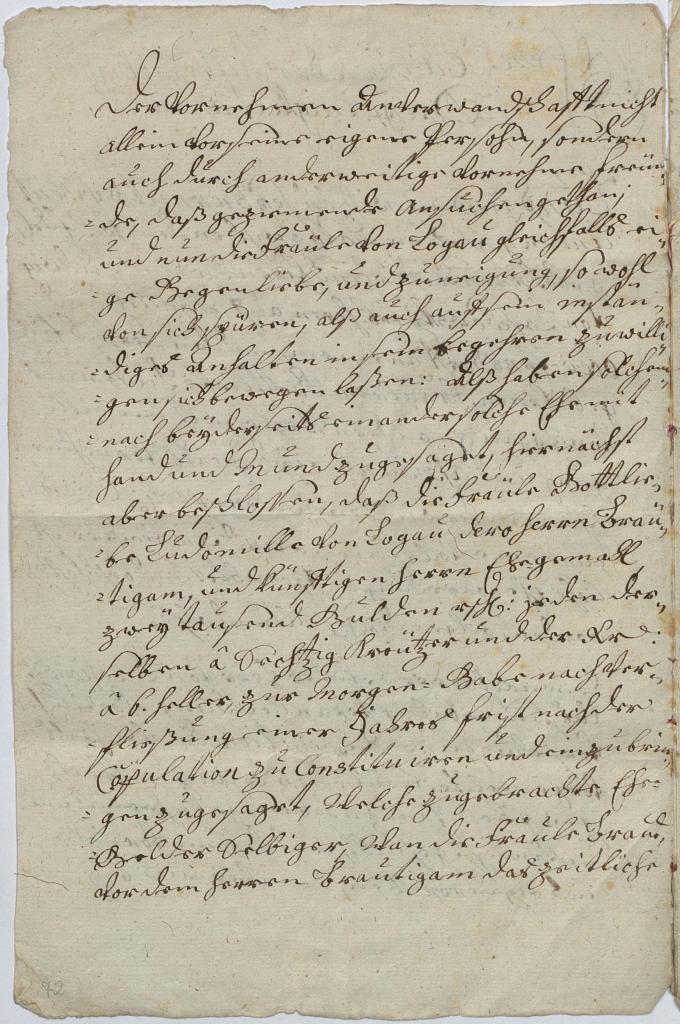 der Vornehmen Anverwandschafft nicht
allein vor seine eigene Persohn, sondern
auch durch anderweitige Vornehme Freün-
-de, daß geziemende Ansuchen gethan,
und nun die Fräule von Logau gleichfalls ei-
-ge Gegenliebe, und zuneigung, so wohl
von sich spüren, alß auch auff sein instän-
-diges Anhalten in sein begehren zu willi-
-gen sich bewegen laßen: Alß haben solchem
-nach beÿderseits einander solche Ehe mit
hand und Mund zugesaget, hiernächst
aber beschlossen, daß die Fräule Gottlie-
-be Ludomilla von Logau dero herrn Bräu-
-tigam, und künfftigen herrn Ehegemahl
zweÿ tausend Gulden rhl: jeden der-
selben â Sechtzig Kreützer und der Kr:
â 6. heller, zur Morgen-Gabe nach Ver-
-fließung einer Jahres frist nach der
Copulation zu Constituiren und einzubrin-
-gen zugesaget, Welche zugebrachte Ehe-
-Gelder Selbiger, Wan die Fräule Braut,
vor dem herren Bräutigam das zeitliche
72